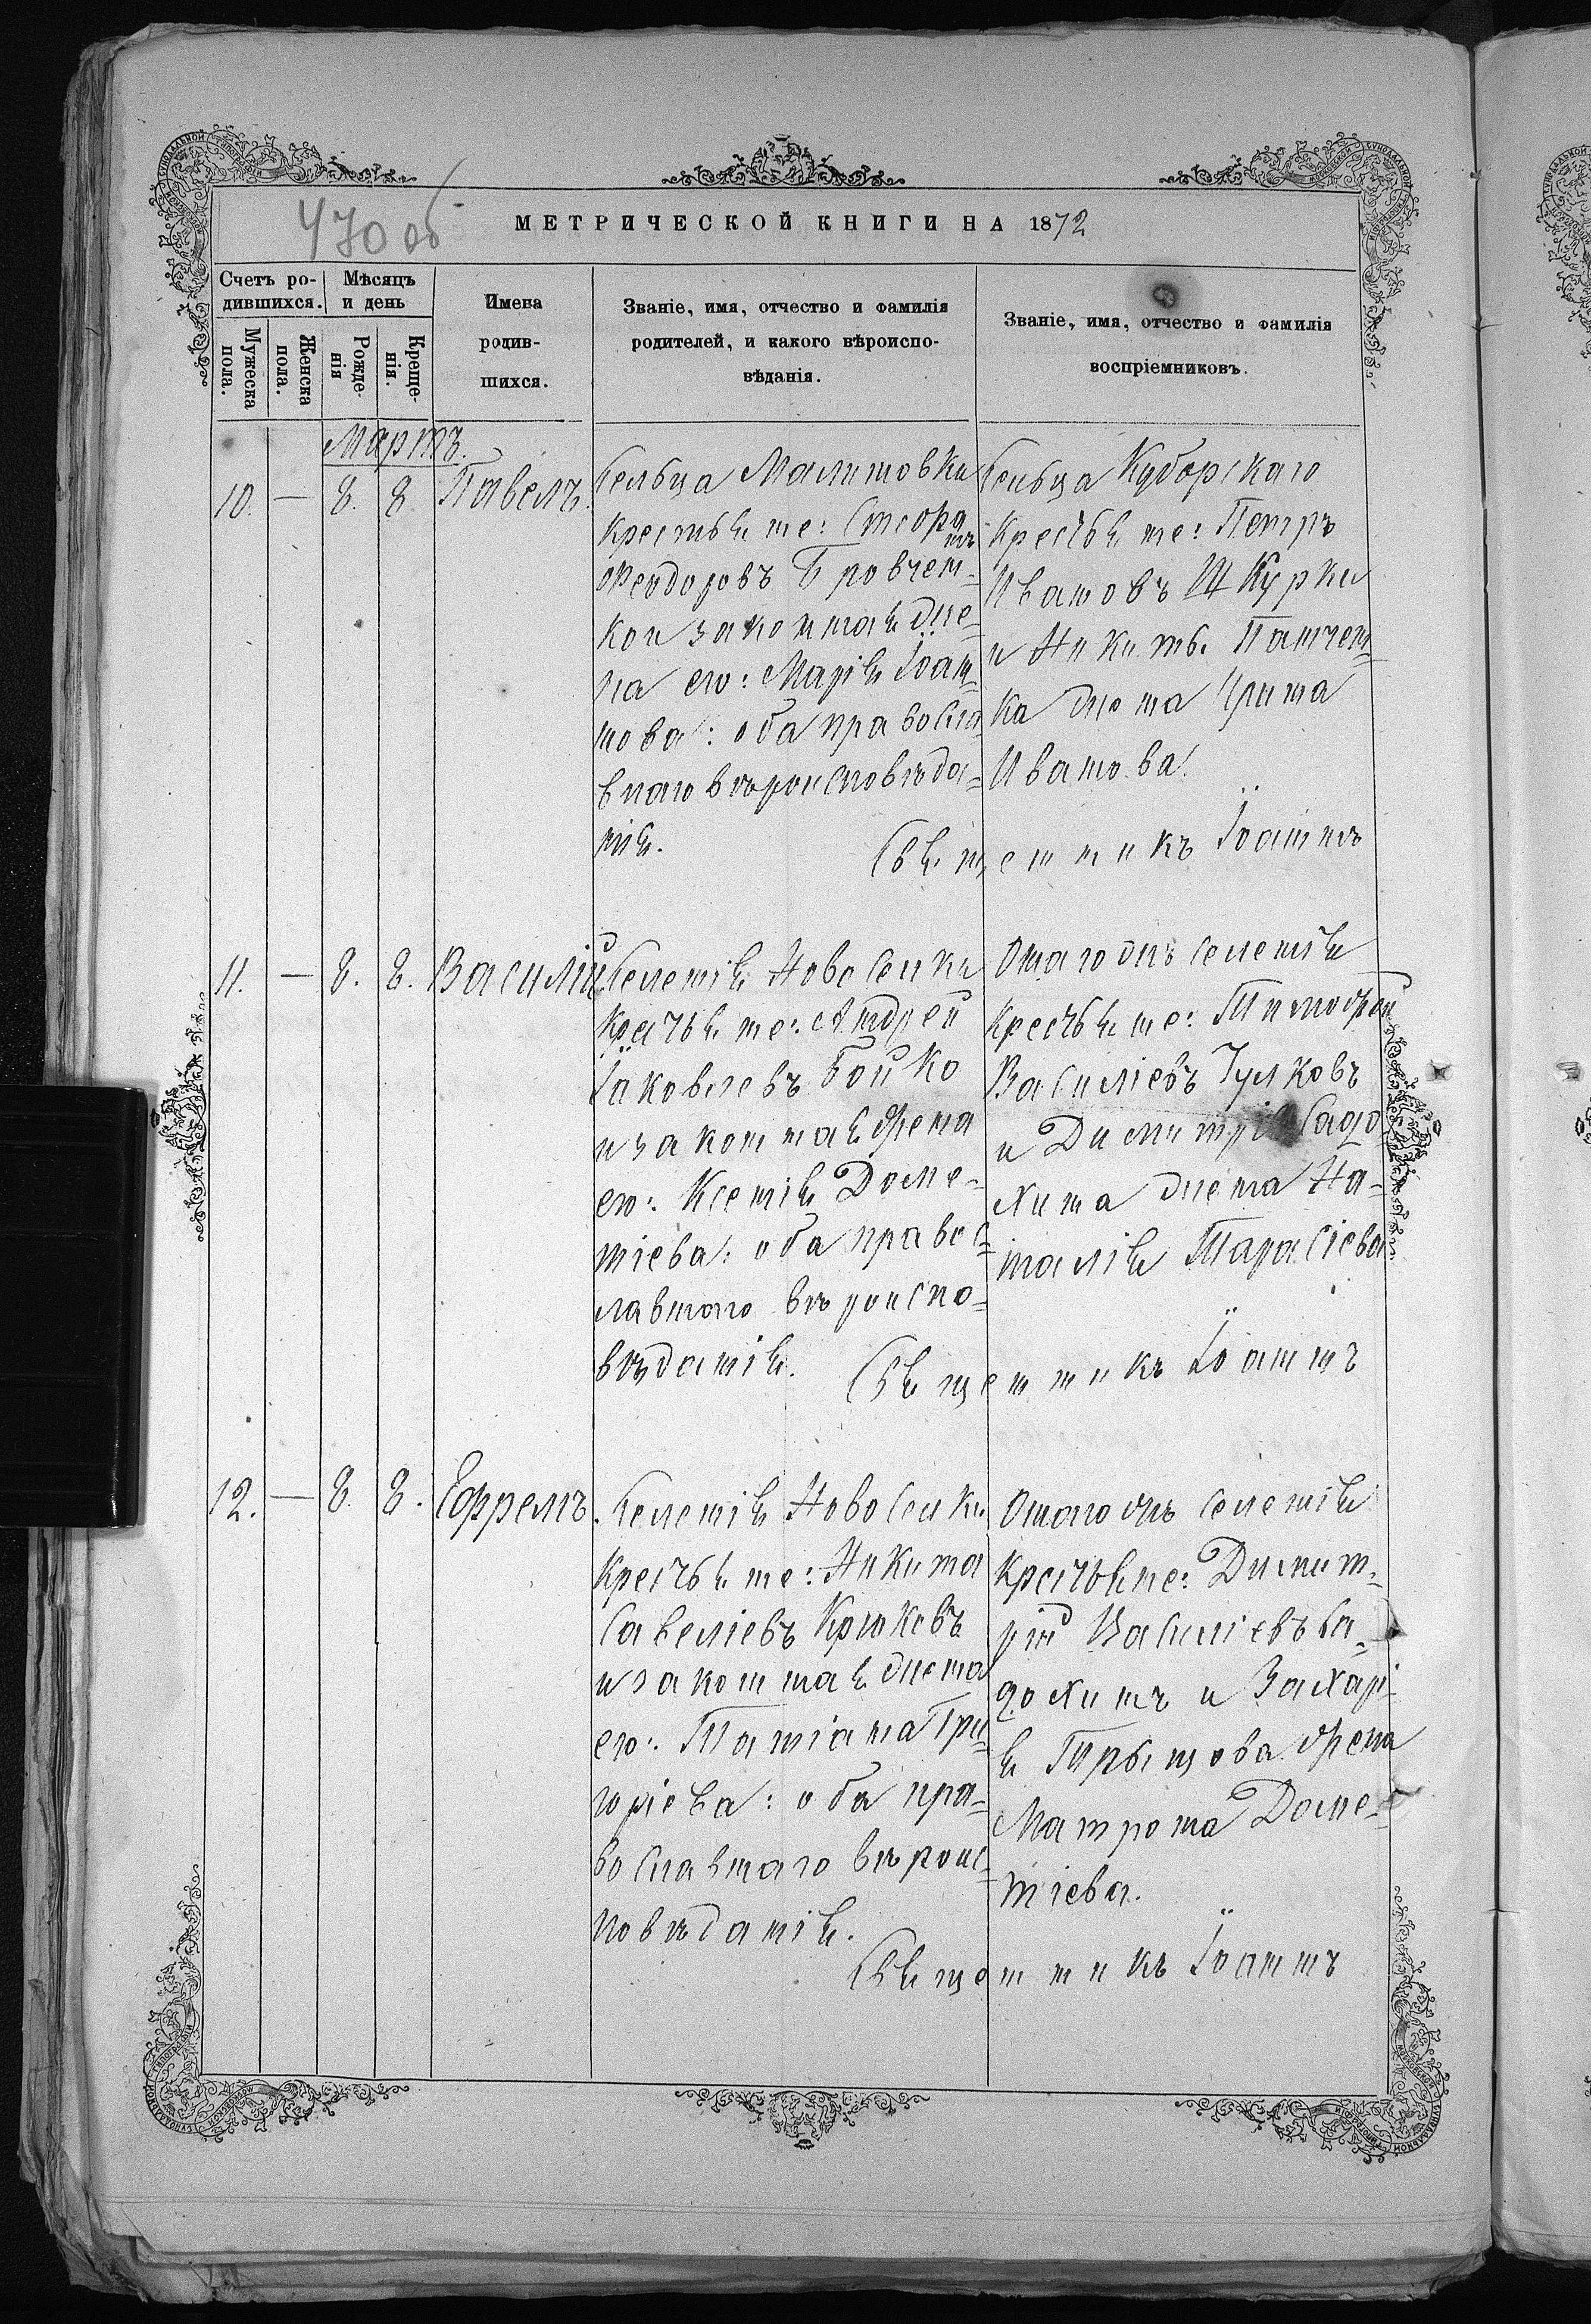 470 об
МЕТРИЧЕСКОЙ КНИГИ НА 1872
Счетъ ро-
дившихся.
Мѣсяцъ
и день
Мужеска
пола.
Женска
пола.
Рожде-
нія
Креще-
нія.
Имена
родив-
шихся.
Званіе, имя, отчество и фамилія
родителей, и какого вѣроиспо-
вѣданія.
Званіе, имя, отчество и фамилія
воспріемниковъ.
Мартъ.
10. — 8. 8. Павелъ.
Сельца Малиновки
крестьяне:
Феодоровъ Бровчен-
ко и законная же-
на его: Марія Іоан-
нова: оба православ-
внаго вѣроисповѣда-
нія.
Сельца Куборскаго
Крестьяне: Петръ
Ивановъ Шкурки
и Никит. Панчен-
ка жена Ирина
Иванова.
Священникъ Іоаннъ
11. — 8. 8. Василій
Селенія Новоселки
Крестьяне: Андрей
Іаковлевъ Бойко
и законная жена
его: Ксенія Доме-
тіева: оба правос-
лавнаго вѣроиспо-
вѣданія.
Онагожъ селенія
Крестьяне: Тимофей
Василіевъ Гулковъ
и Димитрія Садо
хина жена На-
талія Тарасіева
Священникъ Іоаннъ
12. — 8. 8. Ефремъ.
Селенія Новоселки
Крестьяне: Никита
Савеліевъ Крюковъ
и законная жена
его: Татіана Гри-
горіева: оба пра-
вославнаго вѣроис-
повѣданія.
Онагожъ селенія
Крестьяне: Димит-
рій Василіевъ Са-
дохинъ и Захарі-
я Грыцова жена
Матрона Доме-
тіева.
Священникъ Іоаннъ